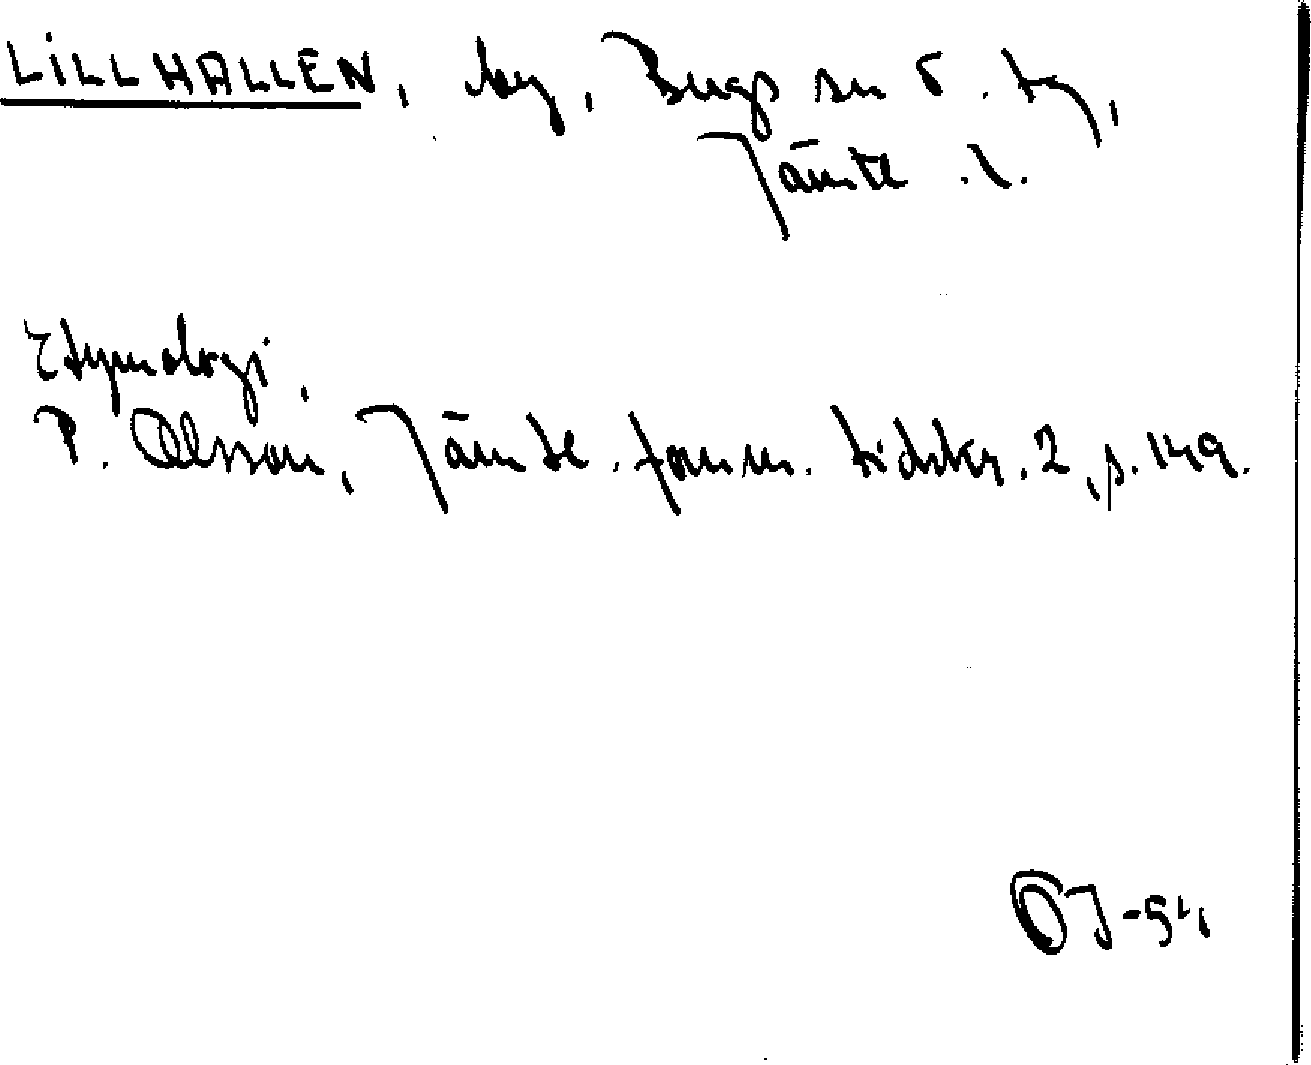 LILLHALLEN, by, Bergs sn o. tg,
Jämtl. l.
Etymologi.
P. Olsson, Jämtl. fornm. tidskr. 2, s. 149.
OJ-54